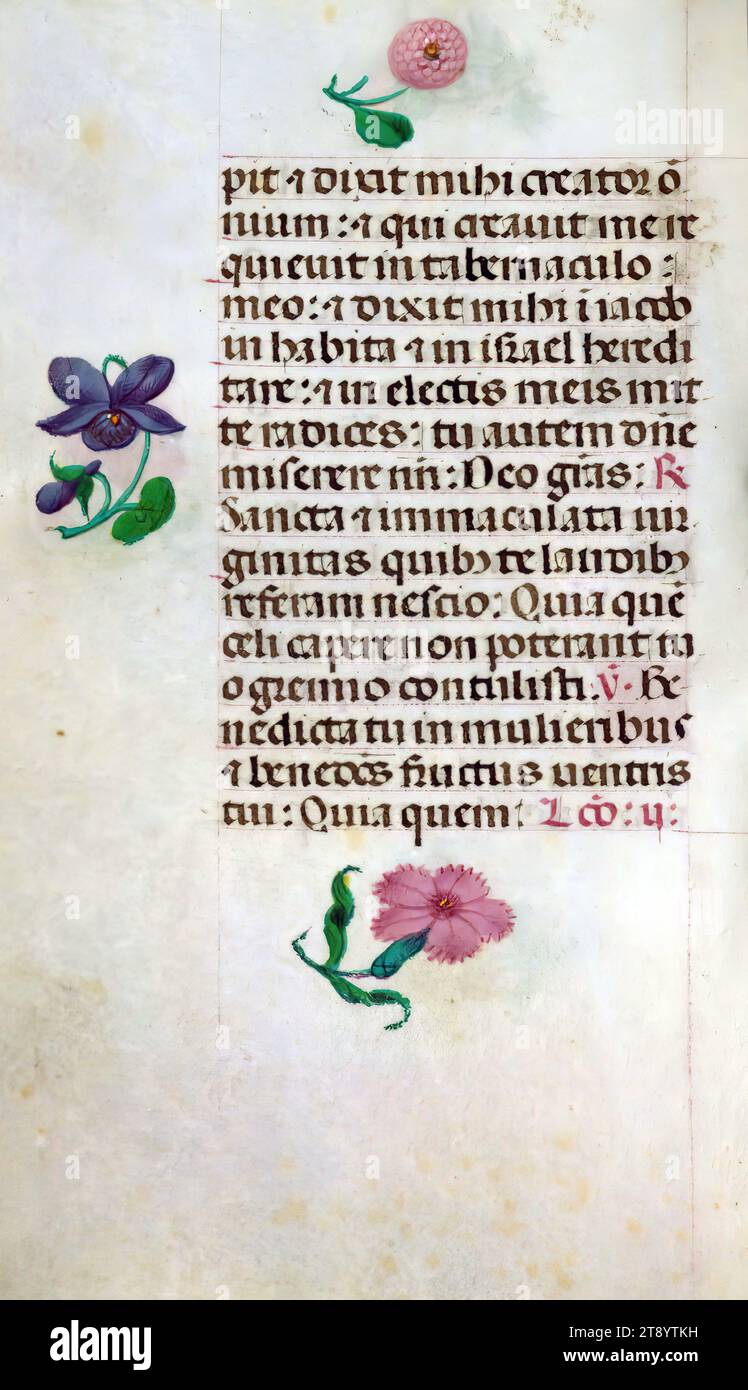 pit ⁊ dixit mihi creator õ
nium : ⁊ qui creauit me re
quieuit in tabernaculo :
meo : ⁊ dixit mihi ĩ iacob
in habita ⁊ in israel heredi
tare : ⁊ in electis meis mit
te radices : tu autem dñe
miserere nr̃i : Deo grãs : ℟
Sancta ⁊ immaculata uir
ginitas quibꝫ te laudibꝫ
referam nescio : Quia quẽ
celi capere non poterant tu
o gremio contulisti. ℣ · Be
nedicta tu in mulieribus
⁊ benedc̃s fructus uentris
tui : Quia quem : Lcõ : ij :
alamy
alamy
Image ID: 2T8YTKH
www.alamy.com